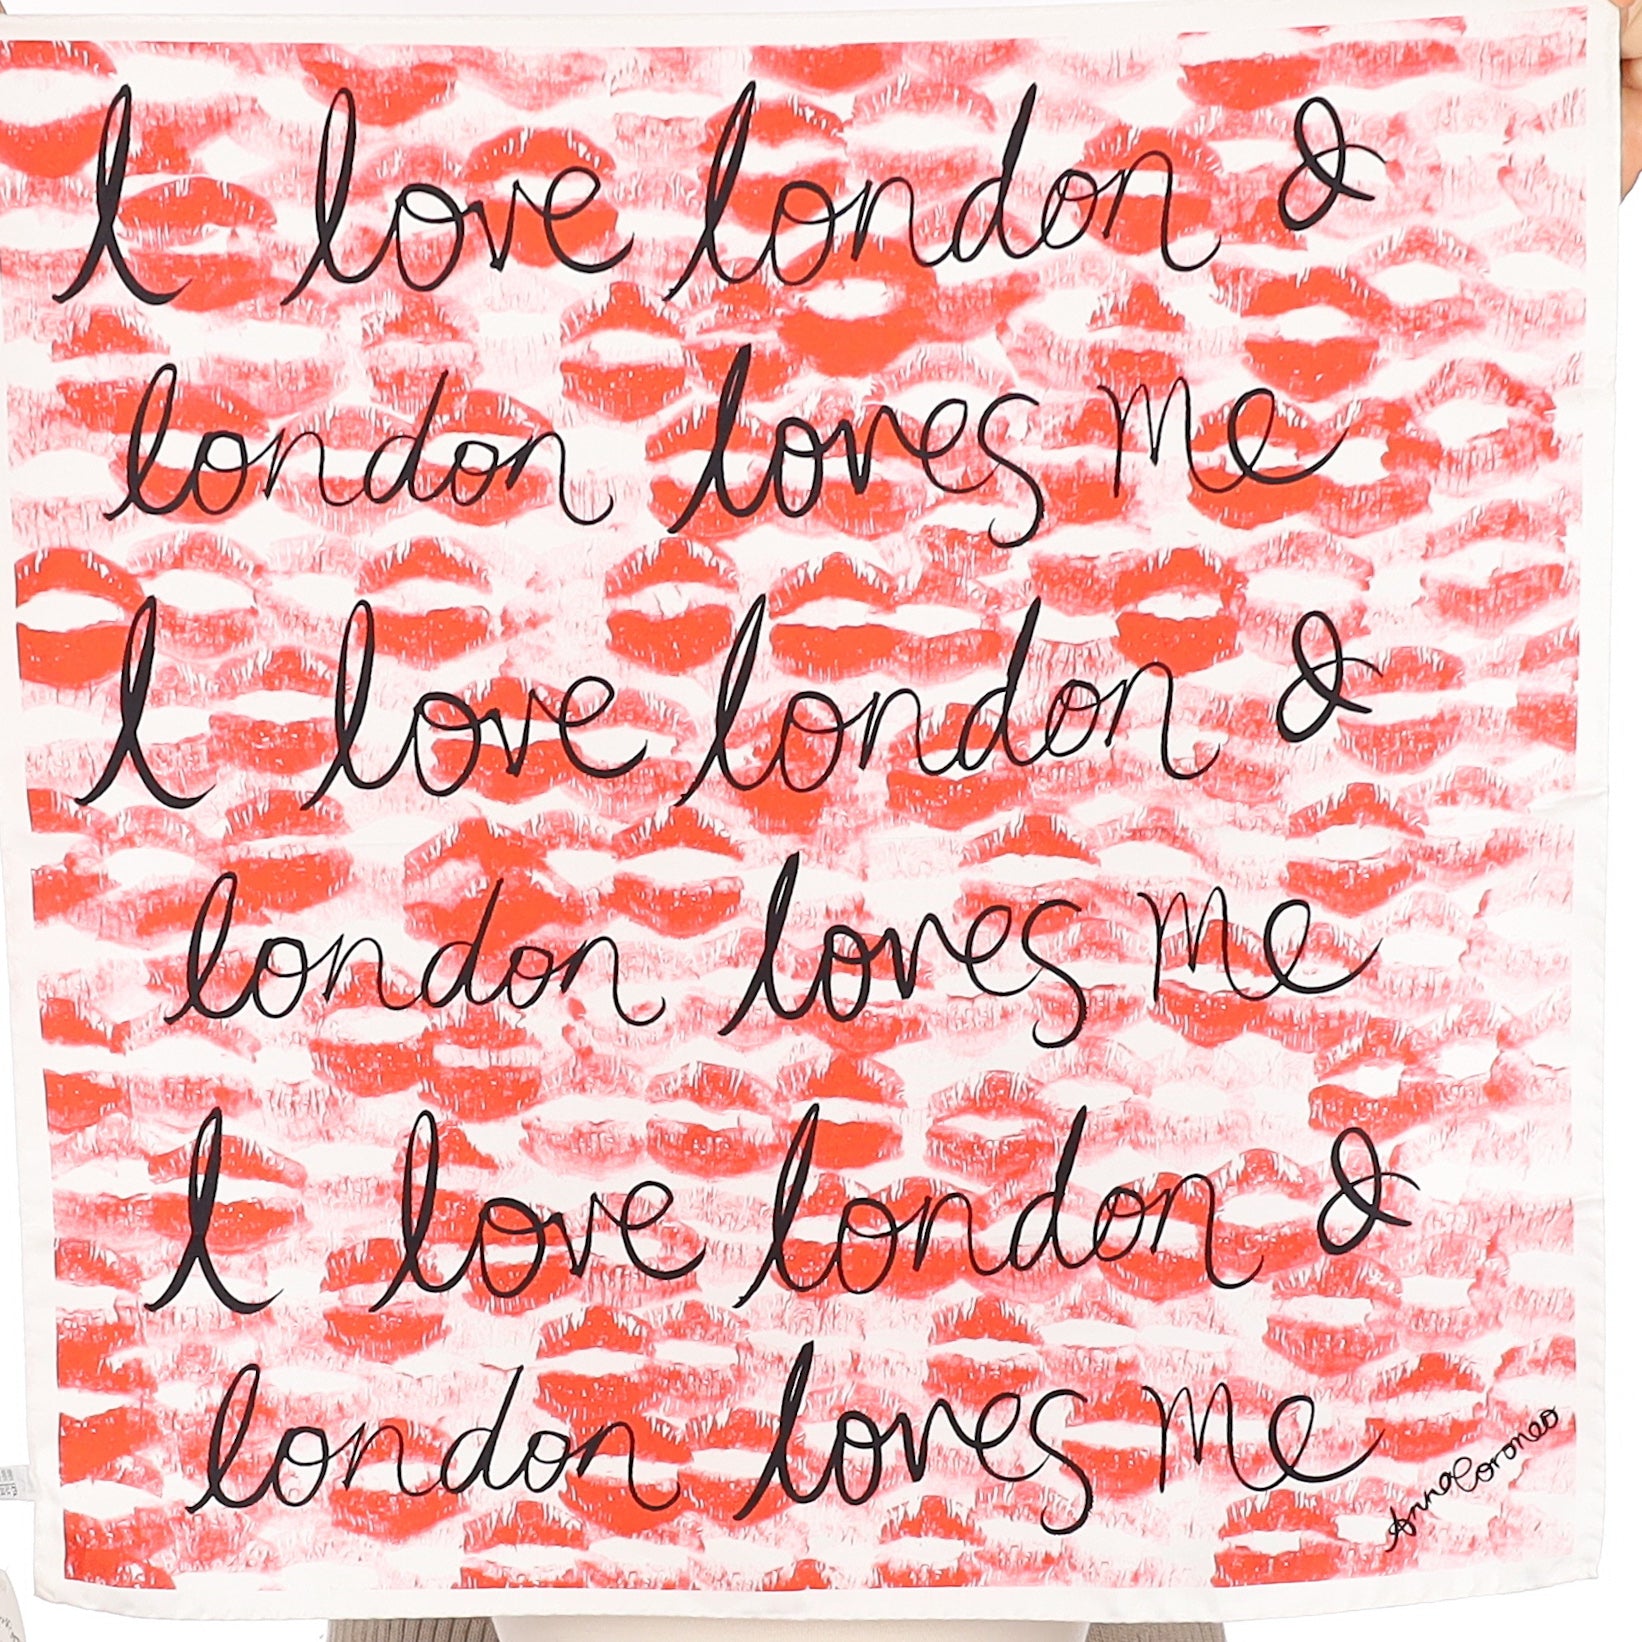 I love london &
london loves me
I love london &
london loves me
I love london &
london loves me
Anna Coroneo